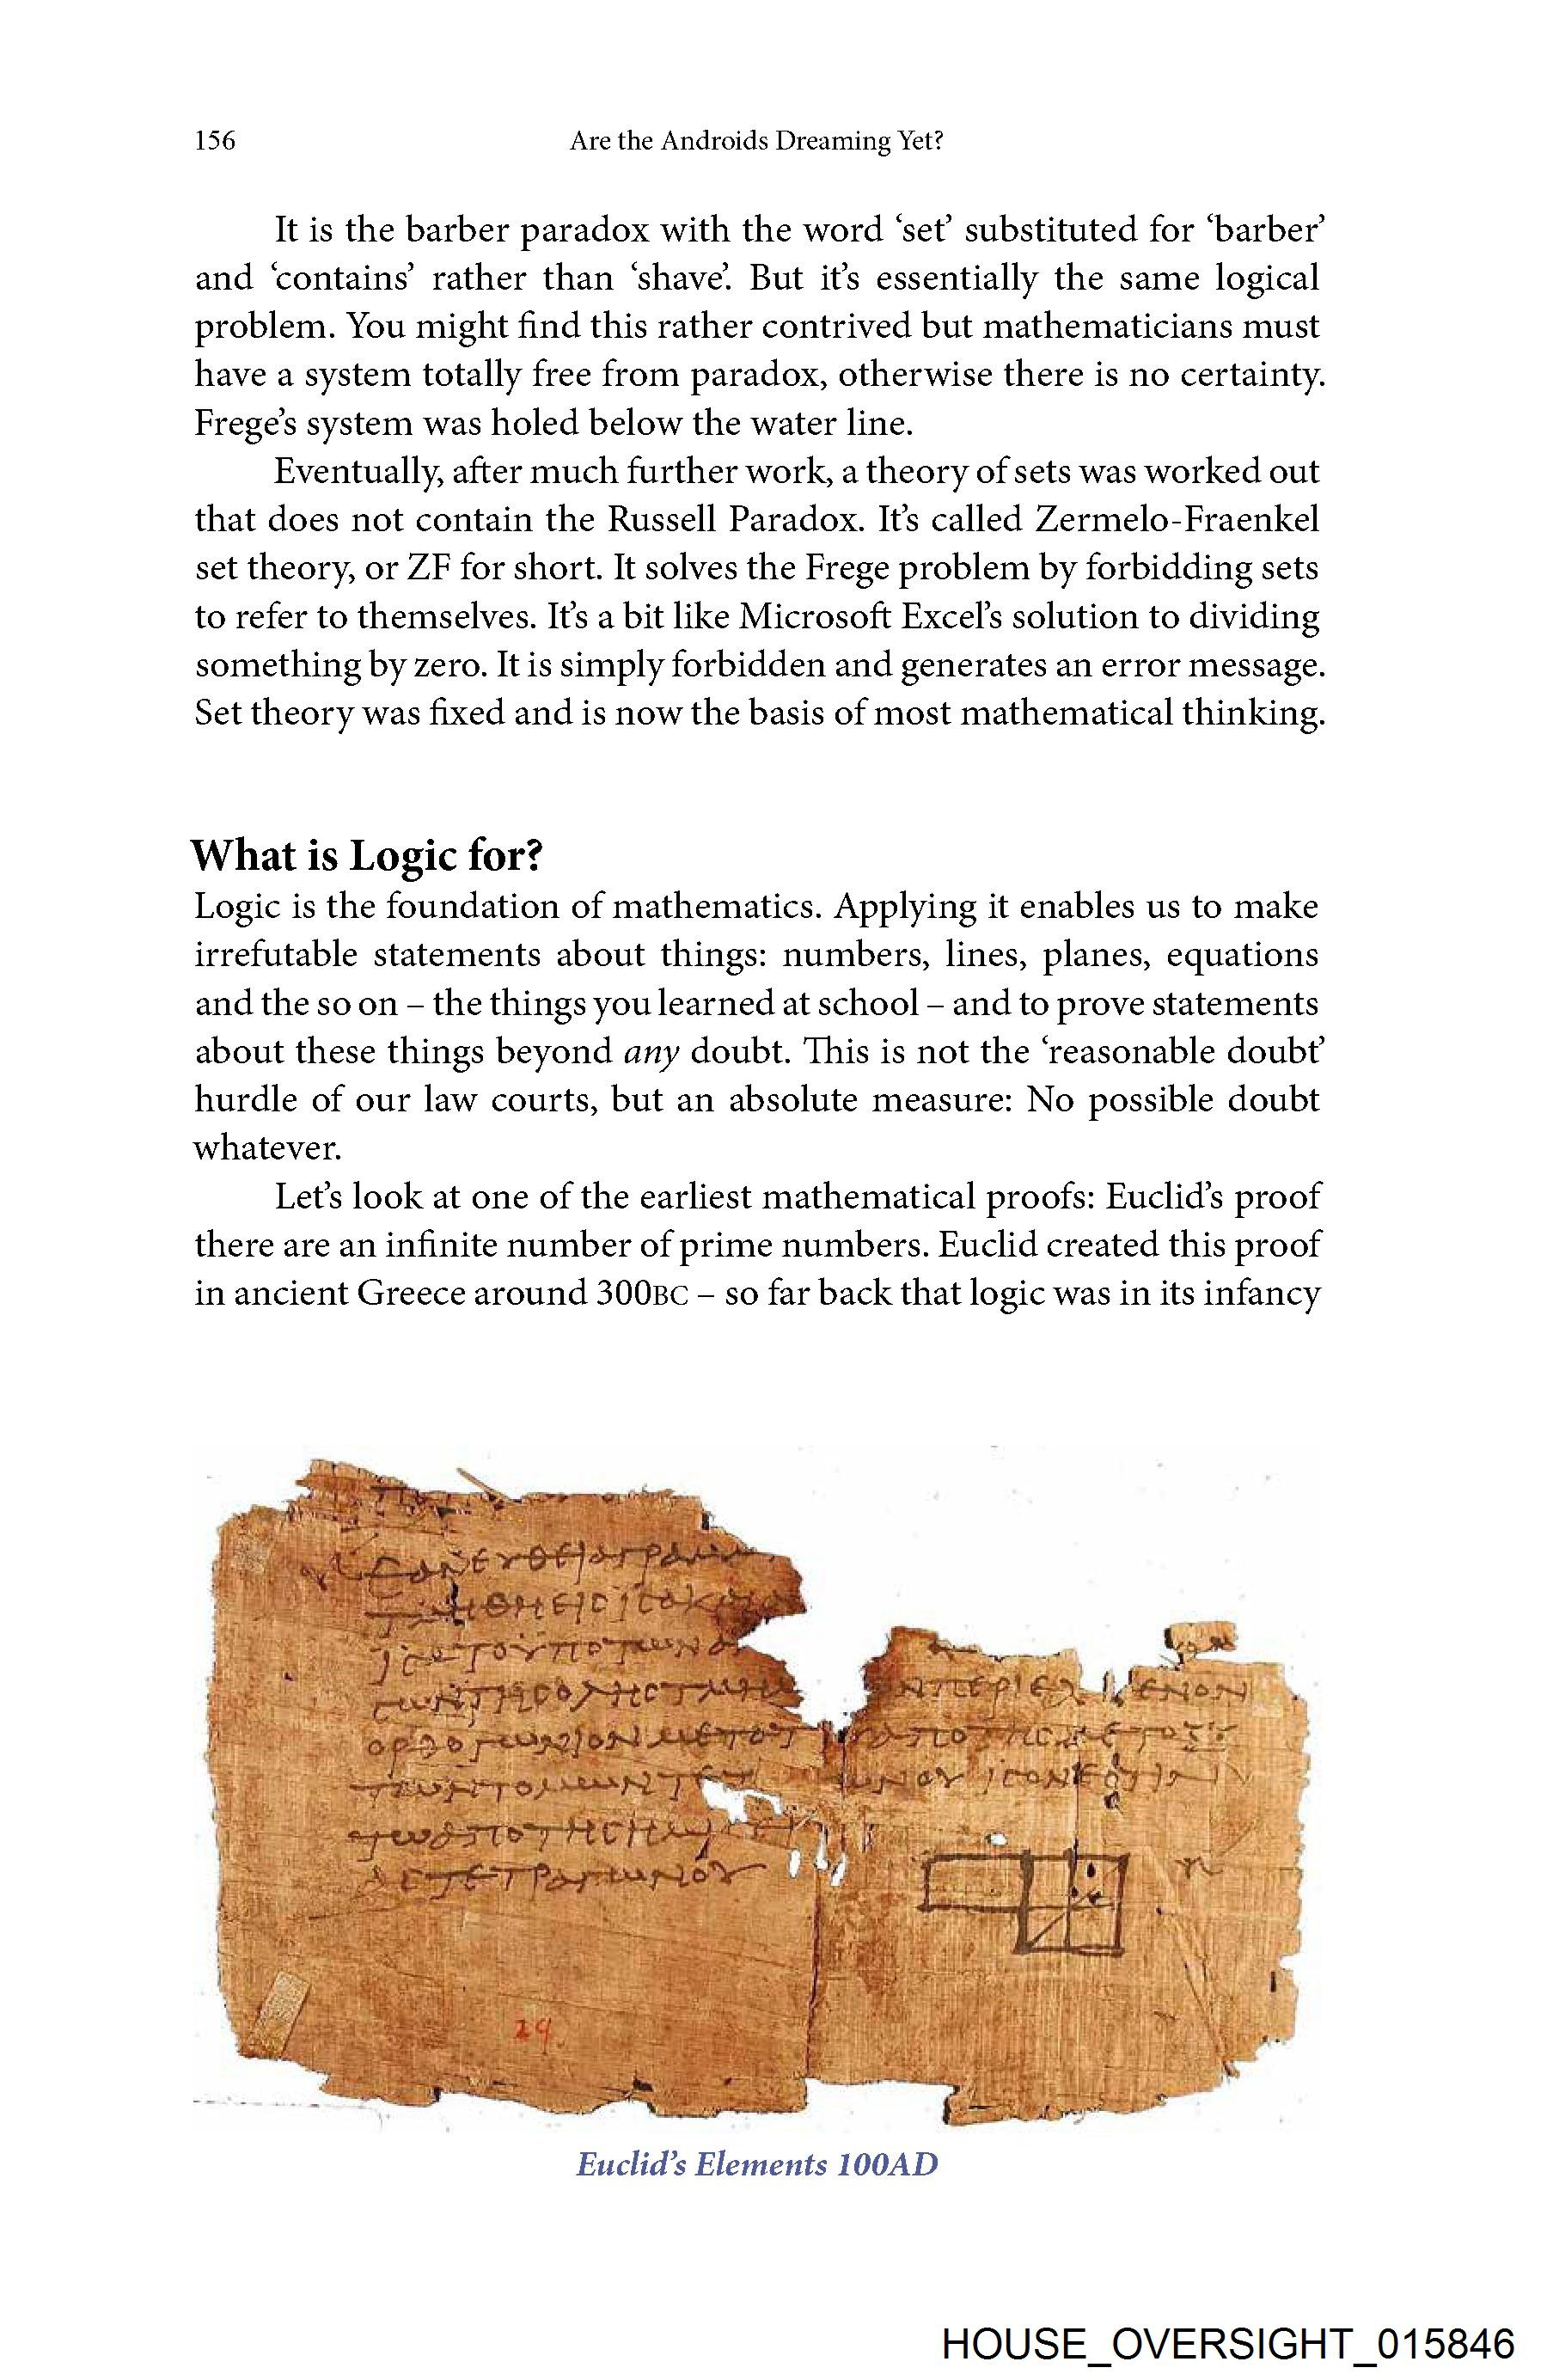 156 Are the Androids Dreaming Yet?
It is the barber paradox with the word ‘set’ substituted for ‘barber’
and ‘contains’ rather than ‘shave’. But it’s essentially the same logical
problem. You might find this rather contrived but mathematicians must
have a system totally free from paradox, otherwise there is no certainty.
Frege’s system was holed below the water line.
Eventually, after much further work, a theory of sets was worked out
that does not contain the Russell Paradox. It’s called Zermelo-Fraenkel
set theory, or ZF for short. It solves the Frege problem by forbidding sets
to refer to themselves. It’s a bit like Microsoft Excel’s solution to dividing
something by zero. It is simply forbidden and generates an error message.
Set theory was fixed and is now the basis of most mathematical thinking.
What is Logic for?
Logic is the foundation of mathematics. Applying it enables us to make
irrefutable statements about things: numbers, lines, planes, equations
and the so on – the things you learned at school – and to prove statements
about these things beyond any doubt. This is not the ‘reasonable doubt’
hurdle of our law courts, but an absolute measure: No possible doubt
whatever.
Let’s look at one of the earliest mathematical proofs: Euclid’s proof
there are an infinite number of prime numbers. Euclid created this proof
in ancient Greece around 300BC – so far back that logic was in its infancy
Euclid’s Elements 100AD
HOUSE_OVERSIGHT_015846